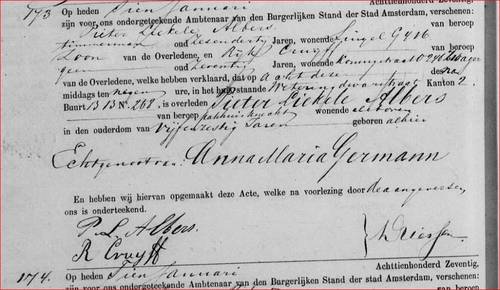 173 Op heden Tien Januari Achttienhonderd Zeventig,
zijn voor ons, ondergeteekende Ambtenaar van den Burgerlijken Stand der Stad Amsterdam, verschenen:
Pieter Liekele Albers van beroep
timmerman oud wonende Singel G 416
Zoon van de Overledene, en Rijk Cruyff van beroep
geen oud zeventig wonende
van de Overledene, welke hebben verklaard, dat op acht dezer des na
middags ten negen ure, in het huis staande Weteringdwarsstraat Kanton 2.
Buurt B B N° 268, is overleden Pieter Liekele Albers
van beroep pakhuisknecht wonende aldaar
in den ouderdom van Vijfenzestig Jaren geboren alhier
Echtgenoot van Anna Maria Germann
En hebben wij hiervan opgemaakt deze Acte, welke na voorlezing door de aangevers en
ons is onderteekend.
P. L. Albers.
R Cruyff
174. Op heden Tien Januari Achttienhonderd Zeventig,
zijn voor ons, ondergeteekende Ambtenaar van den Burgerlijken Stand der stad Amsterdam, verschenen: